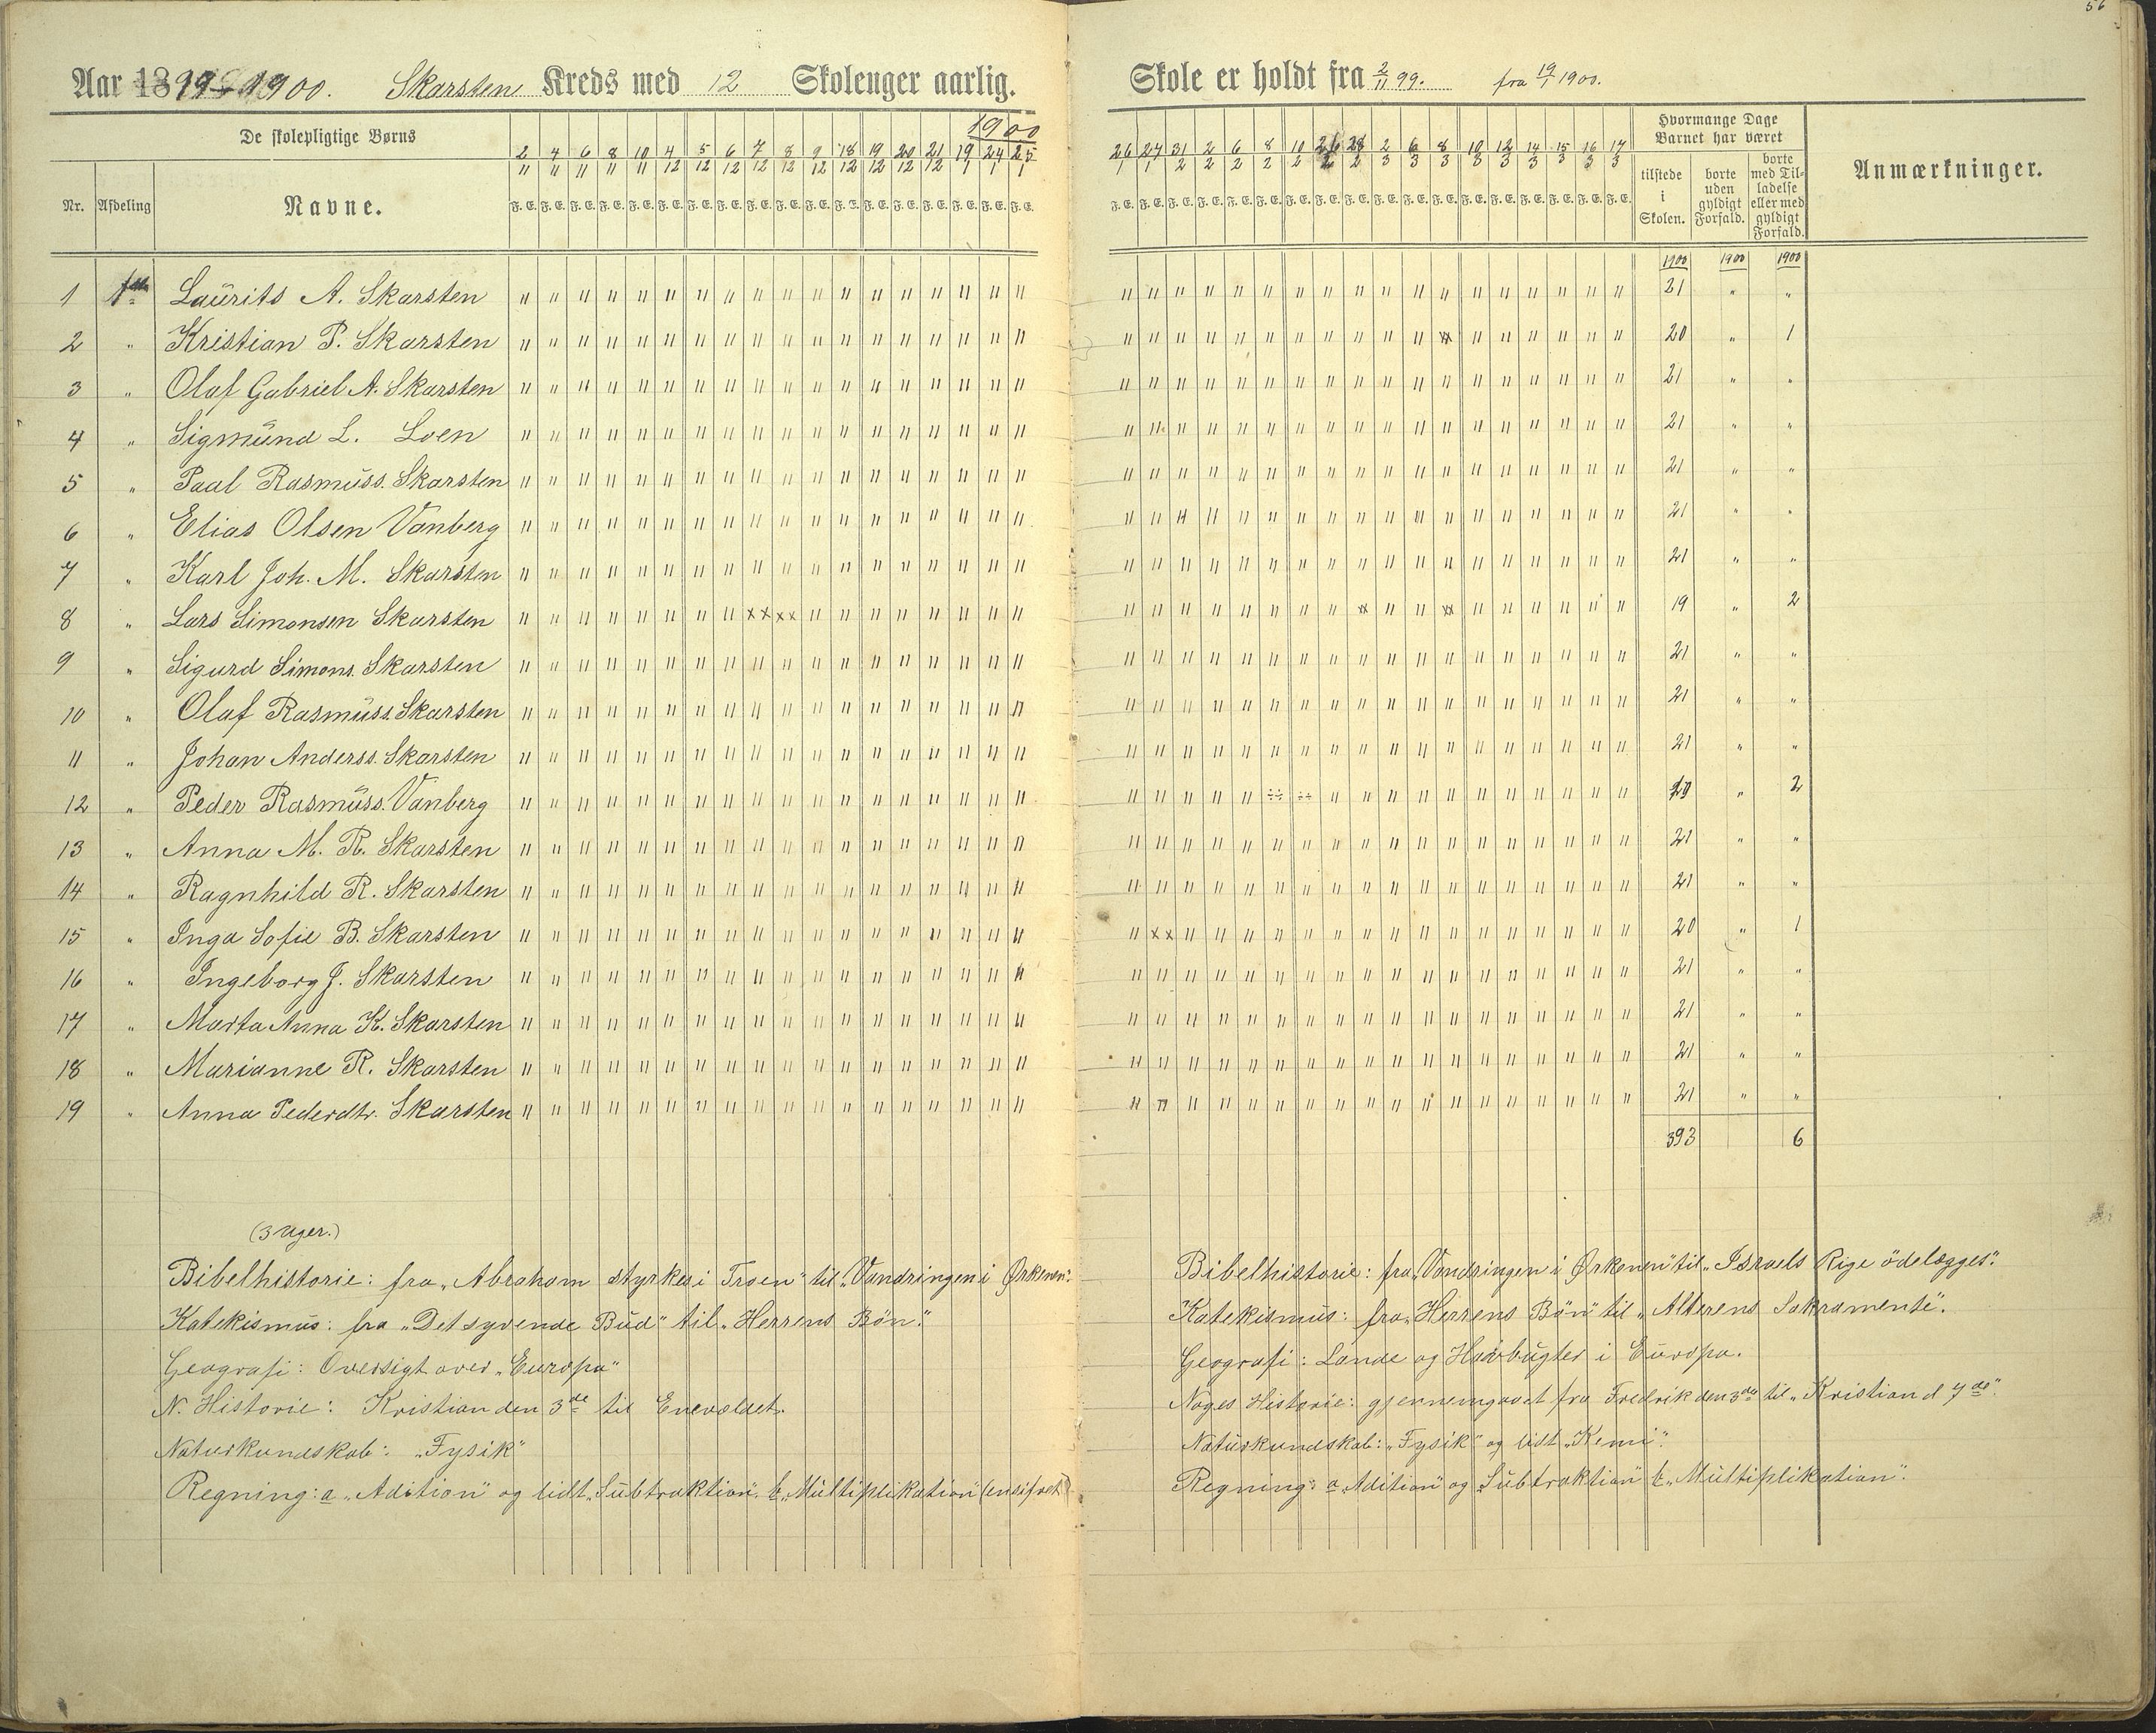 56
Aar 1899-1900. Skarsten Kreds med 12 Skoleuger aarlig. Skole er holdt fra 2/11 99. fra 19/1 1900.
De skolepligtige Børns
1900
Hvormange Dage Barnet har været
Nr. Afdeling Navne.
2/11 4/11 6/11 8/11 10/11 4/12 5/12 6/12 7/12 8/12 9/12 18/12 19/12 20/12 21/12 19/1 24/1 25/1
26/1 27/1 31/1 2/2 6/2 8/2 10/2 26/2 28/2 2/3 6/3 8/3 10/3 12/3 14/3 15/3 16/3 17/3
F. E. F. E. F. E. F. E. F. E. F. E. F. E. F. E. F. E. F. E. F. E. F. E. F. E. F. E. F. E. F. E. F. E. F. E.
F. E. F. E. F. E. F. E. F. E. F. E. F. E. F. E. F. E. F. E. F. E. F. E. F. E. F. E. F. E. F. E. F. E. F. E.
tilstede i Skolen.
borte uden gyldigt Forfald.
borte med Tilladelse eller med gyldigt Forfald.
Anmærkninger.
1900 1900 1900
1 1ste Laurits A. Skarsten 21 " "
2 " Kristian P. Skarsten 20 " 1
3 " Olaf Gabriel A. Skarsten 21 " "
4 " Sigmund L. Loen 21 " "
5 " Paal Rasmuss. Skarsten 21 " "
6 " Elias Olsen Vanberg 21 " "
7 " Karl Joh. M. Skarsten 21 " "
8 " Lars Simonsen Skarsten 19 " 2
9 " Sigurd Simons. Skarsten 21 " "
10 " Olaf Rasmuss. Skarsten 21 " "
11 " Johan Anderss. Skarsten 21 " "
12 " Peder Rasmuss. Vanberg 19 " 2
13 " Anna M. R. Skarsten 21 " "
14 " Ragnhild R. Skarsten 21 " "
15 " Inga Sofie B. Skarsten 20 " 1
16 " Ingeborg J. Skarsten 21 " "
17 " Marta Anna K. Skarsten 21 " "
18 " Marianne R. Skarsten 21 " "
19 " Anna Pederdtr. Skarsten 21 " "
393 6
(3 uger.)
Bibelhistorie: fra „Abraham styrkes i Troen" til „Vandringen i Ørkenen".
Katekismus: fra „Det syvende Bud" til „Herrens Bön."
Geografi: Oversigt over „Europa"
N. Historie: Kristian den 3de til Enevældet.
Naturkundskab: „Fysik"
Regning: a „Adition" og lidt „Subtraktion". b „Multiplikation" (ensifret)
Bibelhistorie: fra „Vandringen i Ørkenen" til „Israels Rige ödelægges".
Katekismus: fra „Herrens Bön" til „Alterens Sakramente".
Geografi: Lande og Havbugter i Europa.
Noges Historie: gjennemgaaet fra Fredrik den 3die til „Kristian d 7de".
Naturkundskab: „Fysik" og lidt „Kemi".
Regning: a „Adition" og „Subtraktion" b „Multiplikation".